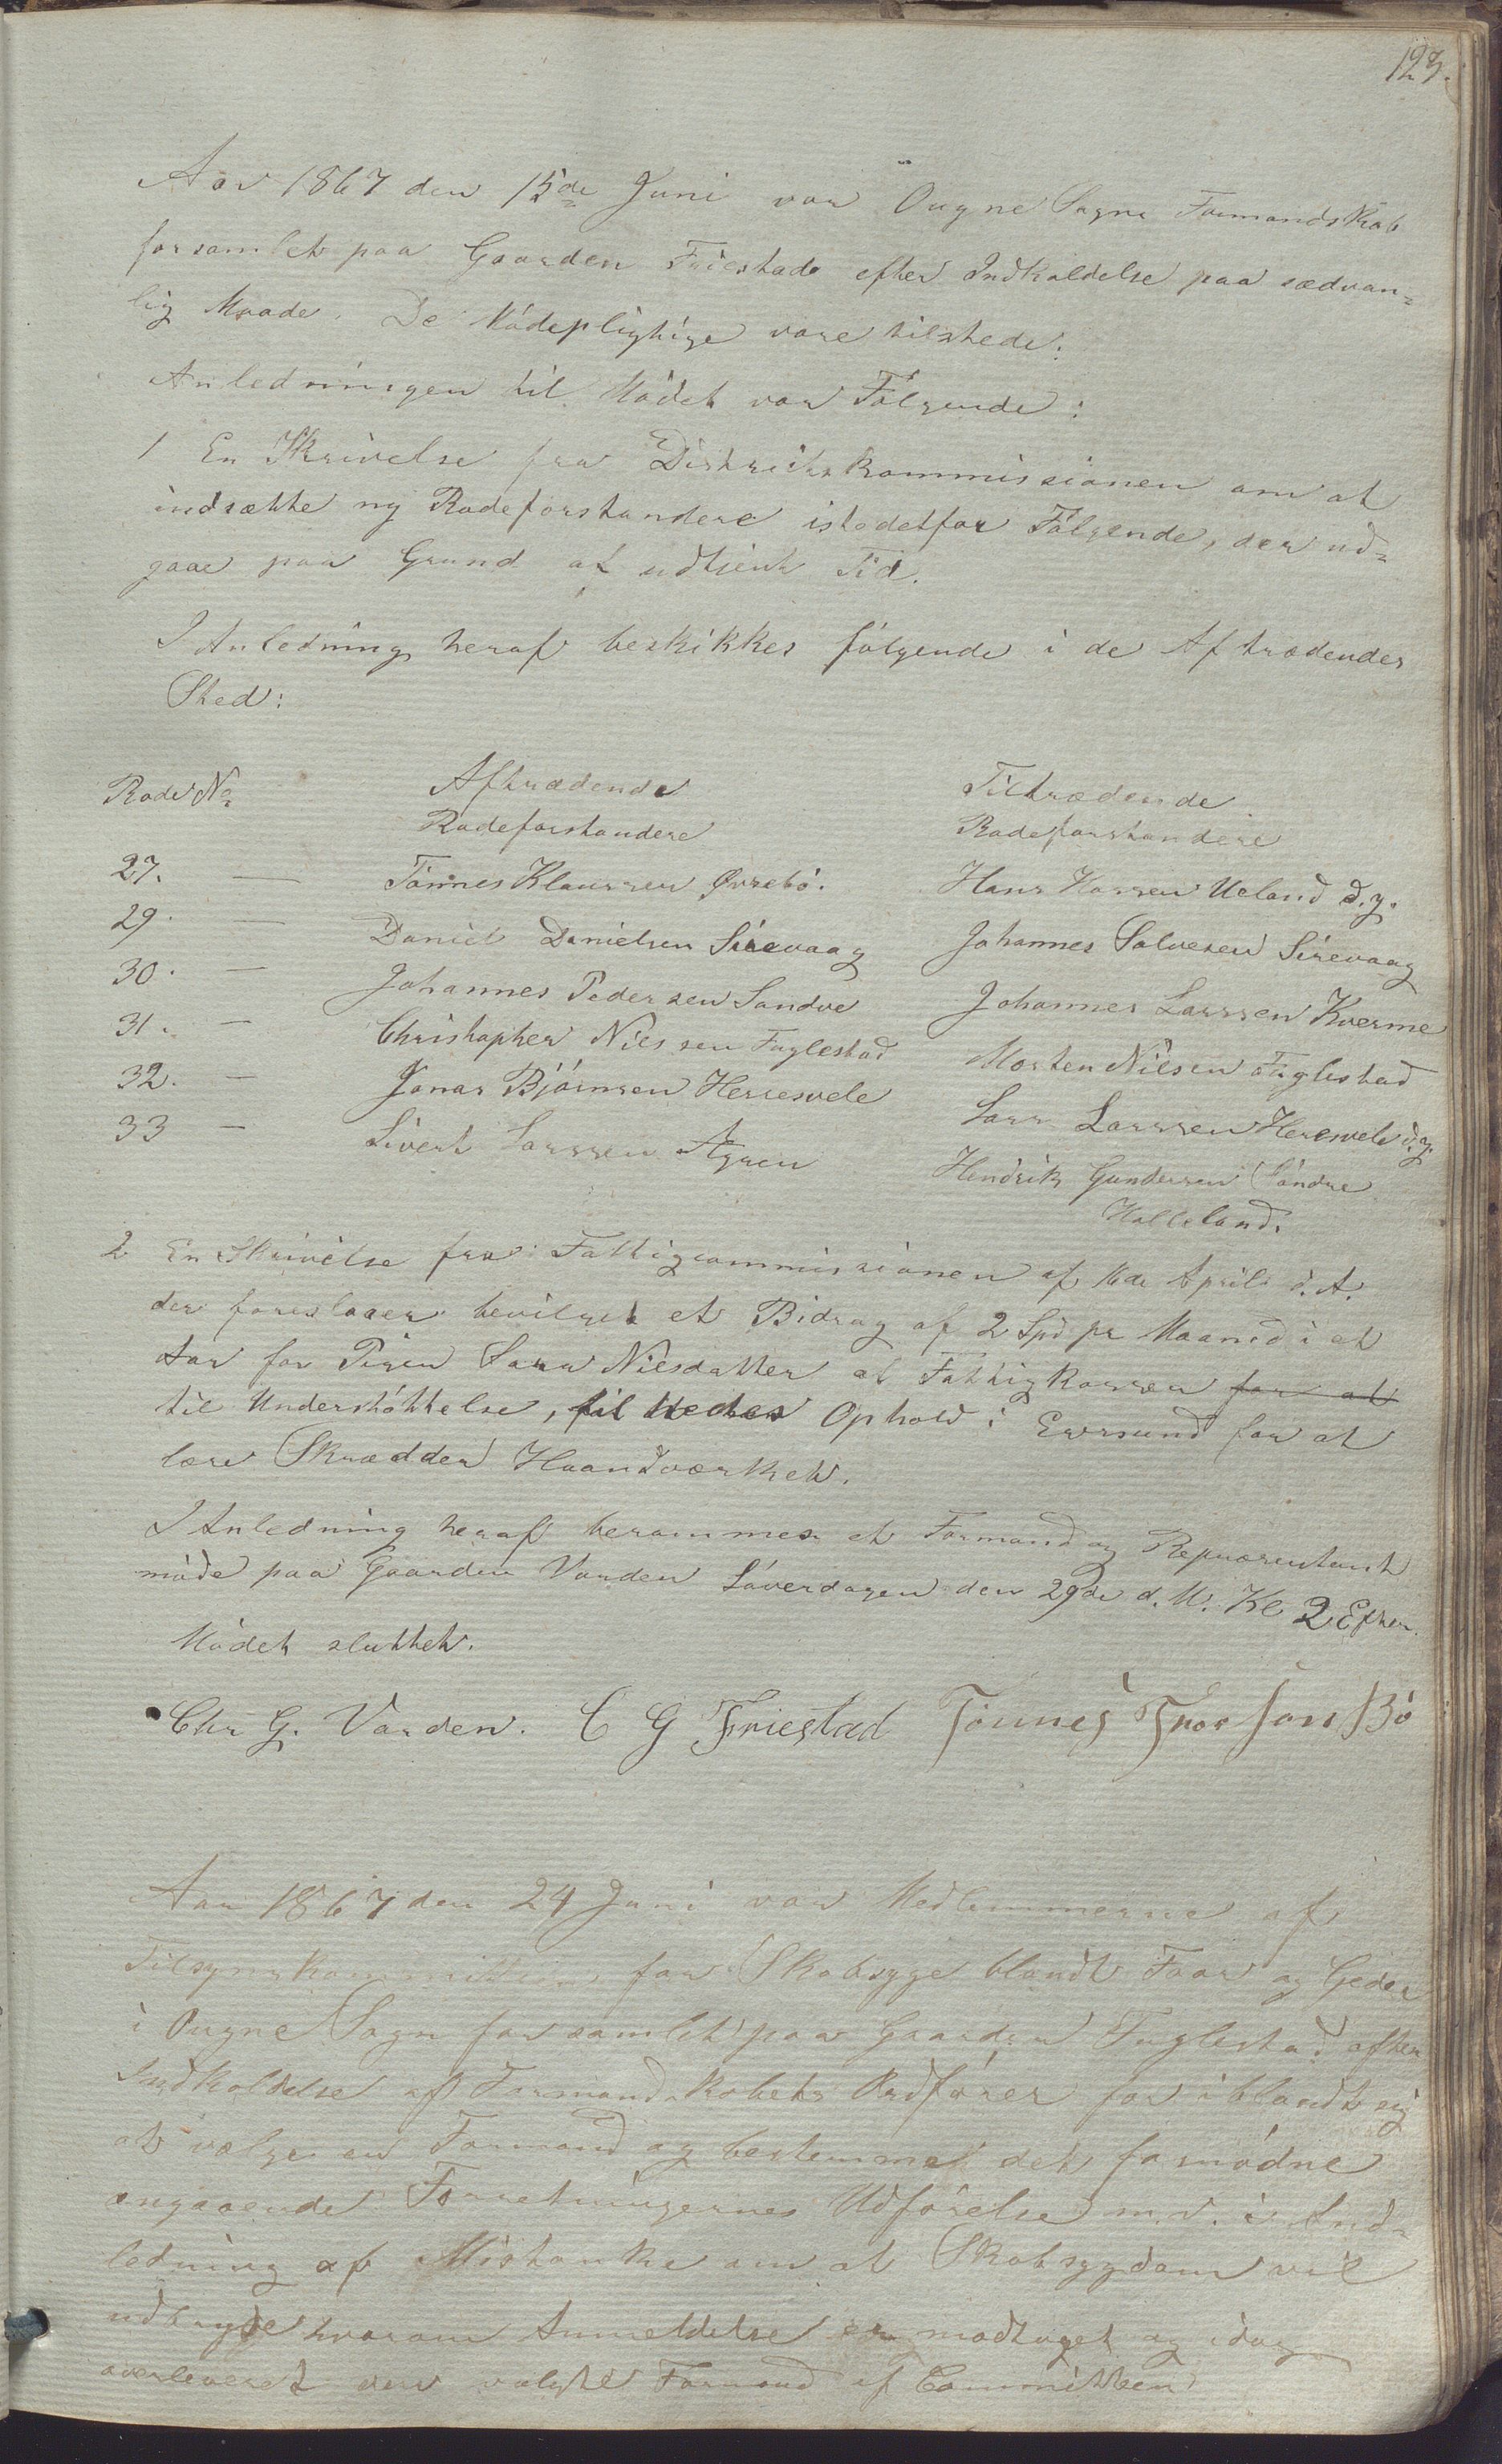 123.
Aar 1867 den 15de Juni var Ougne Sogns Formandskab
forsamlet paa Gaarden Friestad efter Indkaldelse paa sædvan=
lig Maade. De Mødepligtige vare tilstede.
Anledningen til Mødet var Følgende:
1 En Skrivelse fra Distriktskommissionen om at
indsætte ny Rodeforstandere istedetfor Følgende, der ud=
gaae paa Grund af udtjent Tid.
I Anledning heraf beskikkes følgende i de Aftrædendes
Sted:
Rode No Aftrædende Tiltrædende
Rodeforstandere Rodeforstandere
27. — Tønnes Klaussen Øvrebø. Hans Hansen Ueland d.y.
29. — Daniel Danielsen Sirevaag Johannes Salvesen Sirevaag
30. — Johannes Pedersen Sandve Johannes Larssen Kverme
31. — Christopher Nilssen Fuglestad Morten Nilsen Fuglestad
32. — Jonas Bjørnsen Herresvele Lars Larssen Heresvele d.y.
33 — Sivert Larssen Agren Hendrik Gundersen Søndre
Hølleland.
2 En Skrivelse fra Fattigcommissionen af 16de April d.A.
der foreslaaer bevilget et Bidrag af 2 Spd pr Maaned i et
Aar for Pigen Sara Nilsdatter af Fattigkassen for at
til Understøttelse, til hendes Ophold i Egersund for at
lære Skrædder Haandværket.
I Anledning heraf berammes et Formand og Repræsentant
møde paa Gaarden Varden Løverdagen den 29de d.M. Kl 2 Efter.
Mødet sluttet.
Chr G. Varden. C G Friestad Tönnes Thorsen Bö
Aar 1867 den 24 Juni var Medlemmerne af
Tilsynskommitteen for Skabsyge blandt Faar og Geder
i Ougne Sogn forsamlet paa Gaarden Fuglestad efter
Indkaldelse af Formandskabets Ordfører for iblandt sig
at vælge en Formand og bestemme det fornødne
angaaende Forretningernes Udførelse m.v. i And=
ledning af Mistanke om at Skabsygdom vil
udbryde hvorom Anmeldelse er modtaget og idag
overleveret den valgte Formand af Committeen